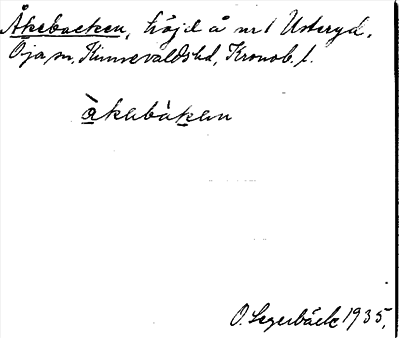 Åkebacken, höjd å nr 1 Usteryd,
Öja sn, Kinnevalds hd, Kronob. l.
åkebàken
O. Segerbäck 1935.